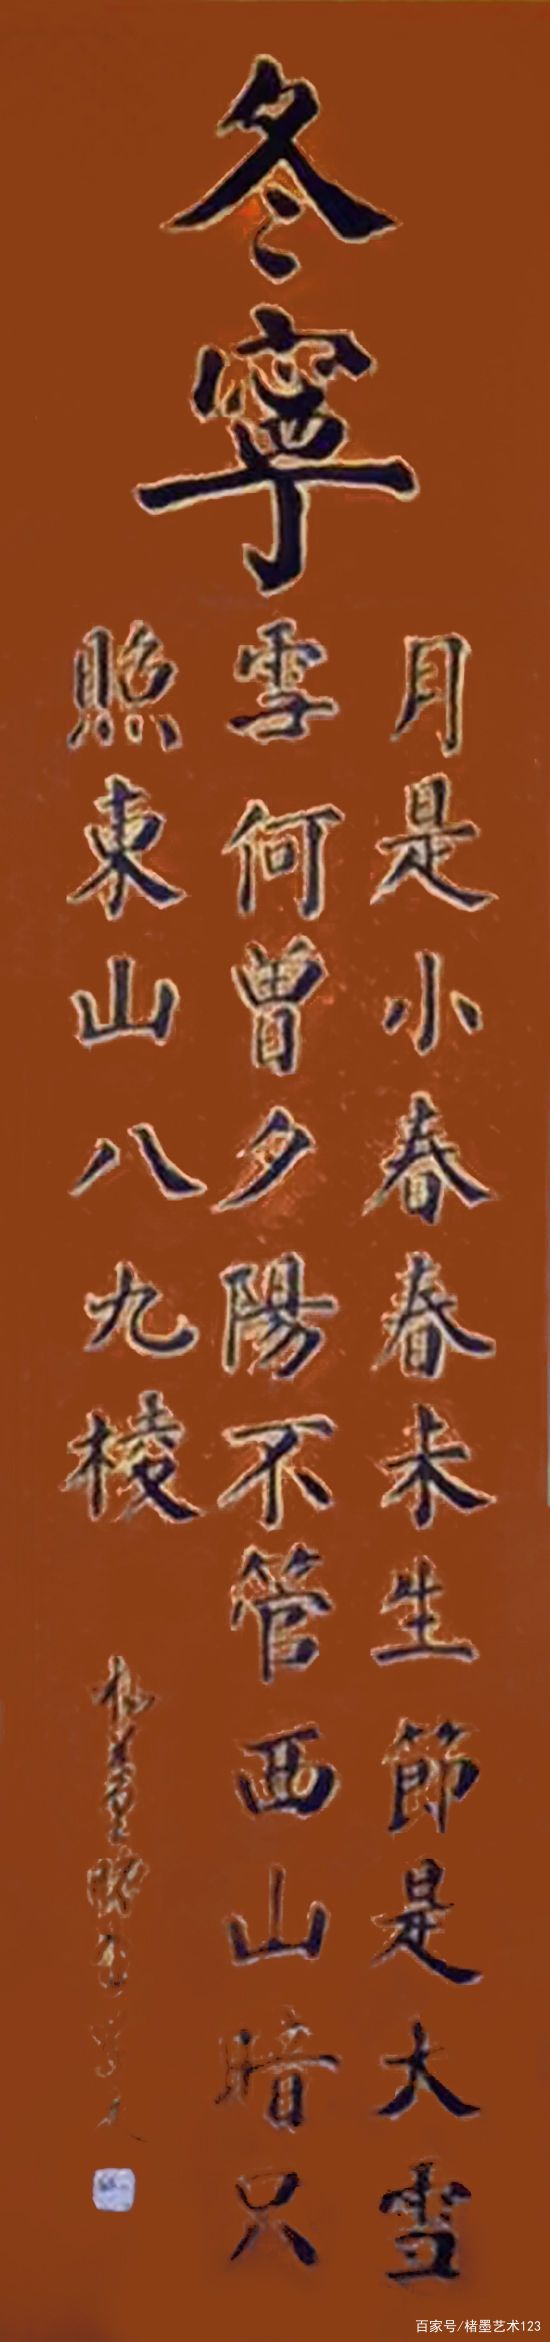 冬寧
月是小春春未生節是大雪
雪何曾夕陽不管西山暗只
照東山八九棱
百家号/楮墨艺术123